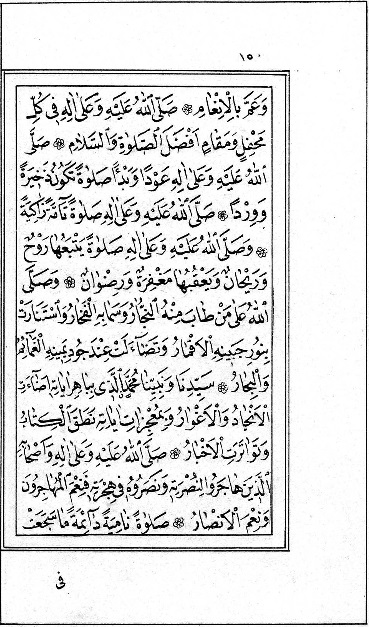 ١٥٠
وَعَمَّ بِالْاِنْعَامِ ۞ صَلَّى اللهُ عَلَيْهِ وَعَلٰى اٰلِهٖ فِى كُلِّ
مَحْفِلٍ وَمَقَامٍ اَفْضَلَ الصَّلٰوةِ وَالسَّلَامِ ۞ صَلَّى
اللهُ عَلَيْهِ وَعَلٰى اٰلِهٖ عَوْدًا وَبَدْأً صَلٰوةً تَكُونُ ذَخِيرَةً
وَوِرْدًا ۞ صَلَّى اللهُ عَلَيْهِ وَعَلٰى اٰلِهٖ صَلٰوةً تَامَّةً زَاكِيَةً
۞ وَصَلَّى اللهُ عَلَيْهِ وَعَلٰى اٰلِهٖ صَلٰوةً يَتْبَعُهَا رَوْحٌ
وَرَيْحَانٌ وَيَعْقُبُهَا مَغْفِرَةٌ وَرِضْوَانٌ ۞ وَصَلَّى
اللهُ عَلٰى مَنْ طَابَ مِنْهُ النِّجَارُ وَسَمَا بِهِ الْفَخَارُ وَاسْتَنَارَتْ
بِنُورِ جَبِينِهِ الْاَقْمَارُ وَتَضَاءَلَتْ عِنْدَ جُودِ يَمِينِهِ الْغَمَائِمُ
وَالْبِحَارُ ۞ سَيِّدِنَا وَنَبِيِّنَا مُحَمَّدٍ الَّذِى بِبَاهِرِ اٰيَاتِهٖ اَضَاءَتِ
الْاَنْجَادُ وَالْاَغْوَارُ وَبِمُعْجِزَاتِ اٰيَاتِهٖ نَطَقَ الْكِتَابُ
وَتَوَاتَرَتِ الْاَخْبَارُ ۞ صَلَّى اللهُ عَلَيْهِ وَعَلٰى اٰلِهٖ وَاَصْحَابِهِ
الَّذِينَ هَاجَرُوا لِنُصْرَتِهٖ وَنَصَرُوهُ فِى هِجْرَتِهٖ فَنِعْمَ الْمُهَاجِرُونَ
وَنِعْمَ الْاَنْصَارُ ۞ صَلٰوةً نَامِيَةً دَآئِمَةً مَا سَجَعَتْ
فى